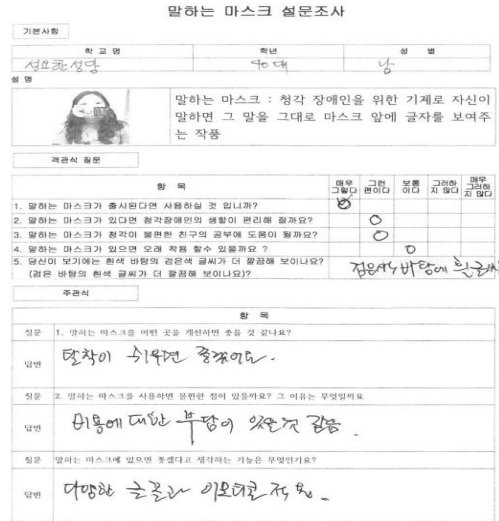 말하는 마스크 설문조사
기본사항
학 교 명 학년 성 별
성모찬성당 40대 남
설 명
말하는 마스크 : 청각 장애인을 위한 기제로 자신이
말하면 그 말을 그대로 마스크 앞에 글자를 보여주
는 작품
객관식 질문
항 목 매우 그렇다 그런 편이다 보통 이다 그러하지 않다 매우 그러하지 않다
1. 말하는 마스크가 출시된다면 사용하실 것 입니까?
2. 말하는 마스크가 있다면 청각장애인의 생활이 편리해 질까요?
3. 말하는 마스크가 청각이 불편한 친구의 공부에 도움이 될까요?
4. 말하는 마스크가 있으면 오래 착용 할수 있을까요 ?
5. 당신이 보기에는 흰색 바탕의 검은색 글씨가 더 깔끔해 보이나요?
(검은 바탕의 흰색 글씨가 더 깔끔해 보이나요)? 검은색 바탕에 흰글씨
주관식
항 목
질문 1. 말하는 마스크를 어떤 곳을 개선하면 좋을 것 같나요?
답변 탈착이 쉬우면 좋겠어요.
질문 2. 말하는 마스크를 사용하면 불편한 점이 있을까요? 그 이유는 무엇일까요
답변 비용에 대한 부담이 있을것 같음.
질문 말하는 마스크에 있으면 좋겠다고 생각하는 기능은 무엇인가요?
답변 다양한 글꼴과 이모티콘 적용.